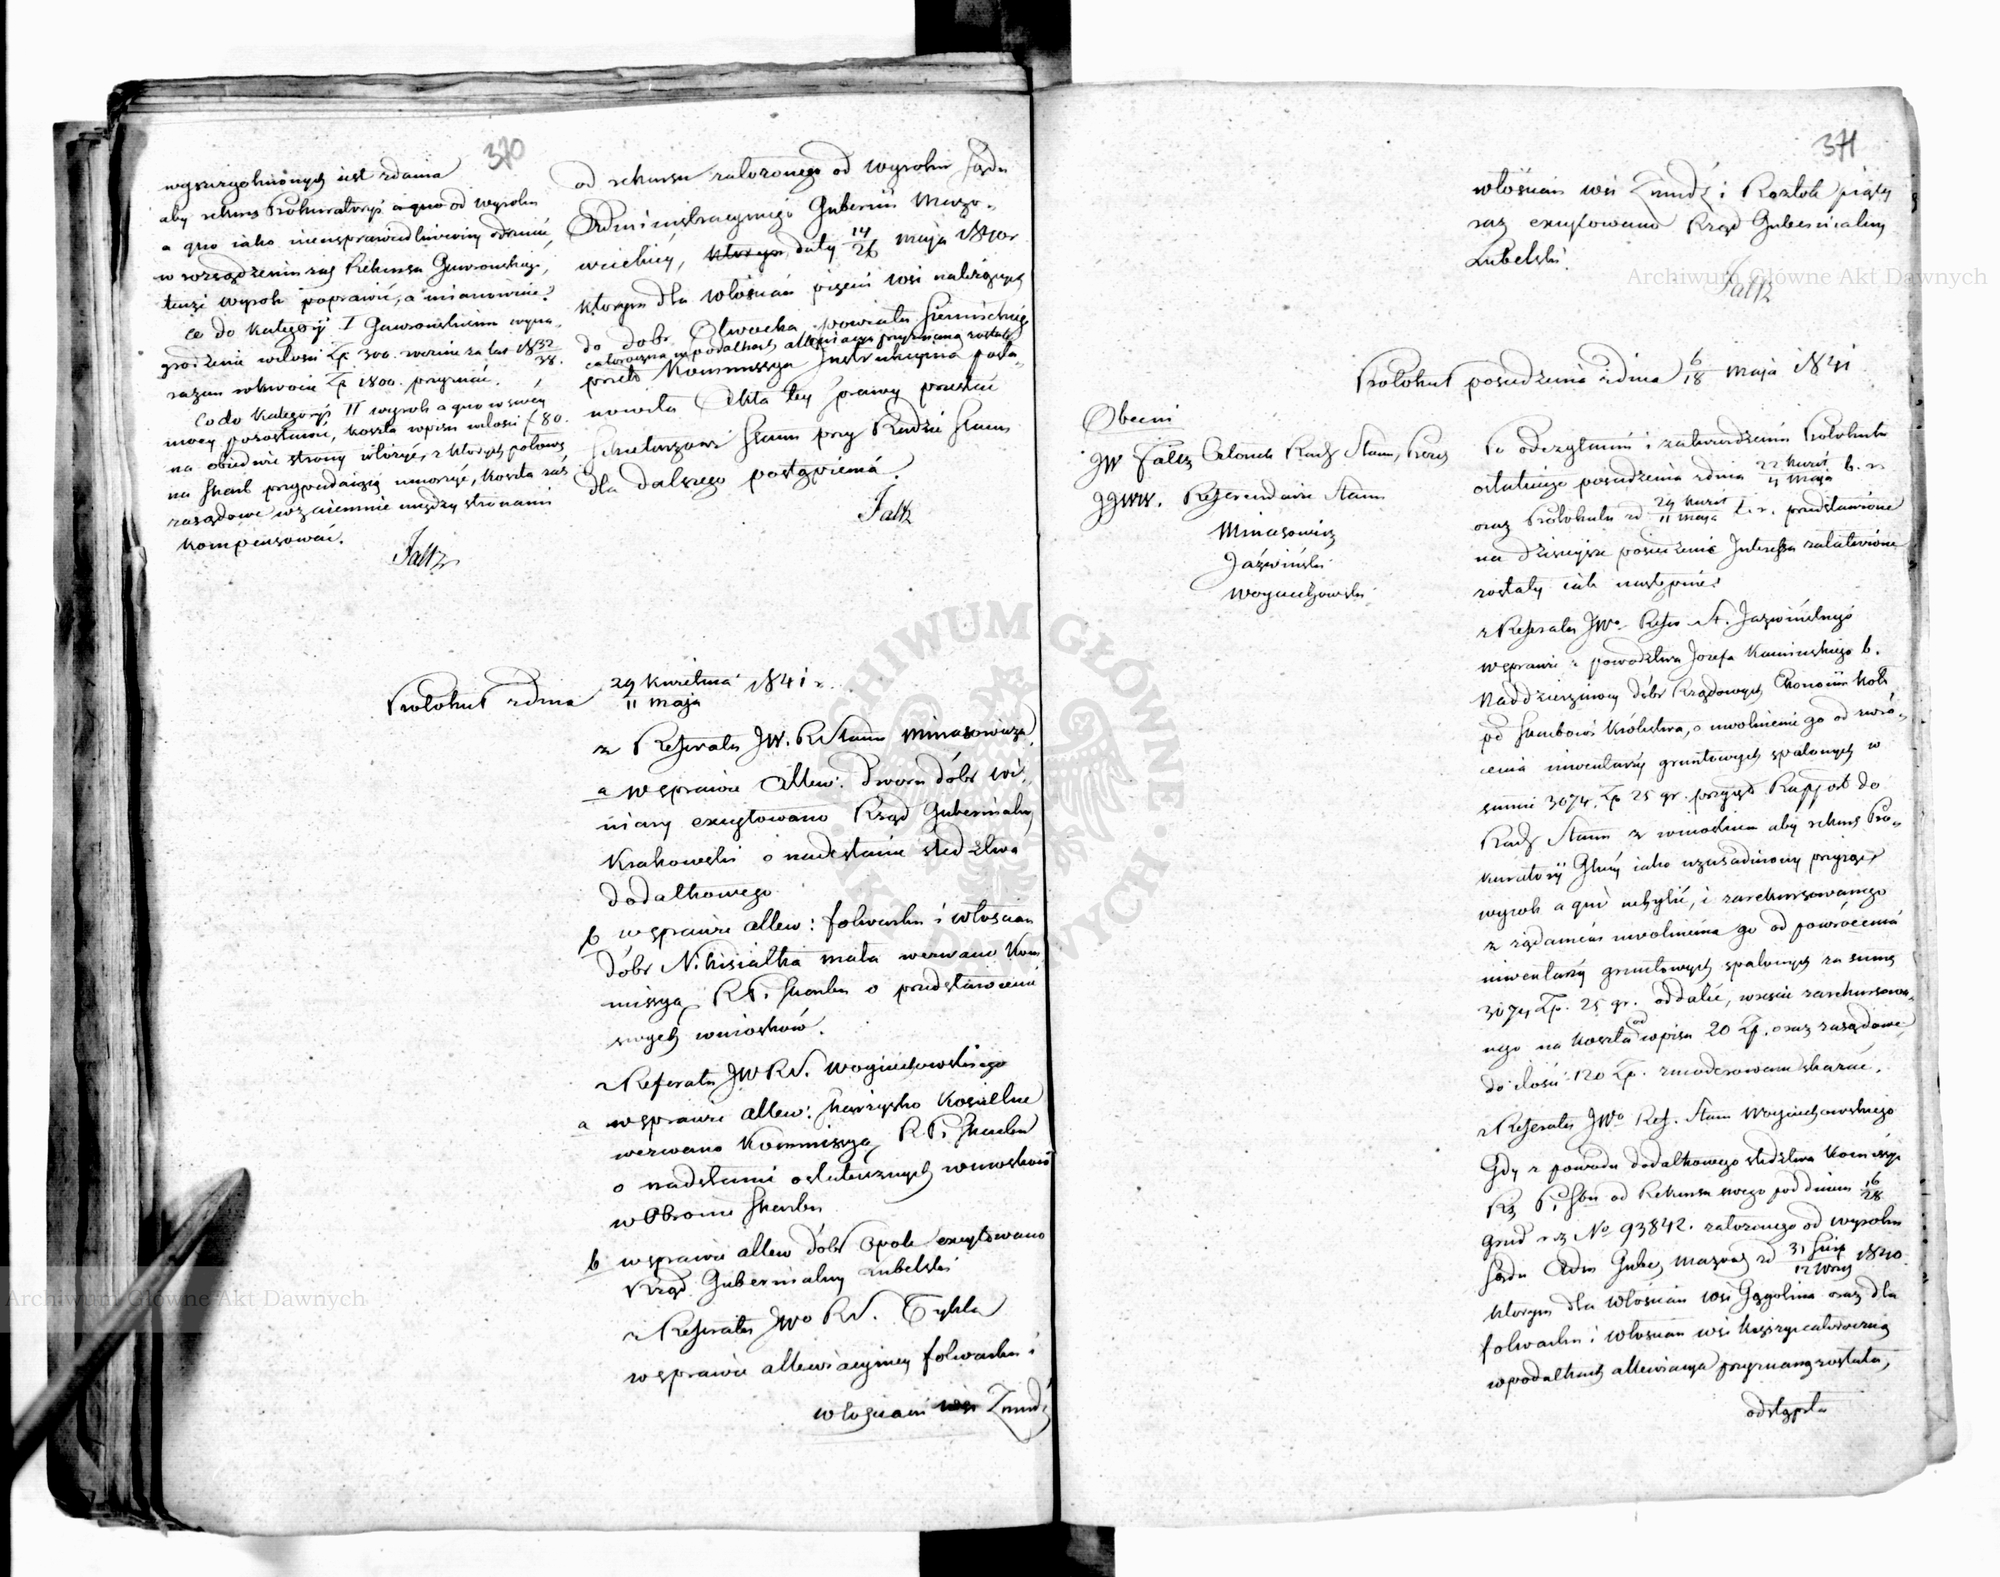 370
wyszczególnionych iest zdania
aby rekurs Prokuratoryi a quo od wyroku
a quo iako nieusprawiedliwiony odrzucić,
w rozsądzeniu zaś Rekursu Gawrońskiego,
tenże wyrok poprawić, a mianowicie:
Co do Kategoryi I Gawrońskiemu wyna-
grodzenie w ilości Zp. 300. rocznie za lat 18 32/38.
razem w kwocie Zp 1800. przyznać.
Co do Kategoryi II wyrok a quo w swey
mocy pozostawić, koszta wpisu w ilości f 80.
na obiedwie strony włożyć, z których połowę
na Skarb przypadaiącą umorzyć, koszta zaś
zasądowe wzaiemnie między stronami
kompensować.
Faltz
od rekursu założonego od wyroku Sądu
Administracyinego Gubernii Mazo-
wieckiey, którym daty 14/26 maja 1840 r
którym dla włościan pięciu wsi należących
do dóbr Otwocka powiatu Siennickiego
całoroczna w podatkach allewiacya przyznaną została
przeto Kommissya Instrukcyina posta-
nowiła Akta tey sprawy przesłać
Sekretarzowi Stanu przy Radzie Stanu
dla dalszego postąpienia.
Faltz
Protokuł z dnia 29 Kwietnia / 11 maja 1841 r.
z Referatu JW. R Stanu Minasowicza
a w sprawie Allew. dworu dóbr
excytowano Rząd Gubernialny
Krakowski o nadesłanie śledztwa
dodatkowego
b w sprawie allew: folwarku i włościan
dóbr Nikisiałka mała wezwano Kom
missyą R. P. Skarbu o przedstawienie
swych wniosków.
z Referatu JW R S. Woyciechowskiego
a w sprawie allew: Karzysko Kościelne
wezwano Kommissyą R. P. Skarbu
o nadesłanie ostatecznych wniosków
w Obronie Skarbu
b w sprawie allew dóbr Opole excytowano
Rząd Gubernialny Lubelski
z Referatu JWo R S. Tykla
w sprawie allewiacyiney folwarku i
włościan wsi Zmudź
371
włościan wsi Zmudź i Roztok piąty
raz excytowano Rząd Gubernialny
Lubelski.
Faltz
Protokuł posiedzenia z dnia 6/18 maja 1841
Obecni
JW Faltz Członek Rady Stanu, Prezes
JJWW. Referendarze Stanu
Minasowicz
Jaźwiński
Woyciechowski
Po odczytaniu i zatwierdzeniu Protokułu
ostatniego posiedzenia z dnia 22 Kwiet / 4 Maja b. r.
oraz Protokułu z d 29 Kwiet / 11 maja t. r. przedstawione
na dzisiejsze posiedzenie Interessa załatwione
zostały iak następuie:
z Referatu JWo Refer St. Jaźwińskiego
w sprawie z powództwa Jozefa Kamińskiego b.
Naddzierżawcy dóbr Rządowych Ekonomii Koło
pd Skarbowi Królestwa, o uwolnienie go od zwró-
cenia inwentarzy gruntowych spalonych w
summie 3074. Zp 25 gr. przyięto Rapport do
Rady Stanu z wnioskiem aby rekurs Pro-
kuratoryi Głney iako uzasadniony przyiąć,
wyrok a quo uchylić, i zarekursowanego
z żądaniem uwolnienia go od powrócenia
inwentarzy gruntowych spalonych za summę
3074 Zp. 25 gr. oddalić, wreście zarekursowa-
nego na koszta od wpisu 20 Zp. oraz zasądowe
do ilości 120 Zp. zmoderowane skazać.
z Referatu JWo Ref. Stanu Woyciechowskiego
Gdy z powodu dodatkowego śledztwa Kommissya
Rz. P. i Sbu od Rekursu swego pod dniem 16/28
Grud r z No 93842. założonego od wyroku
Sądu Adm Guber Mazow z d 31 Sierp / 12 Wrześ 1840.
którym dla włościan wsi Gągolina oraz dla
folwarku i włościan wsi całoroczną
w podatkach allewiacya przyznaną została,
odstąpiła